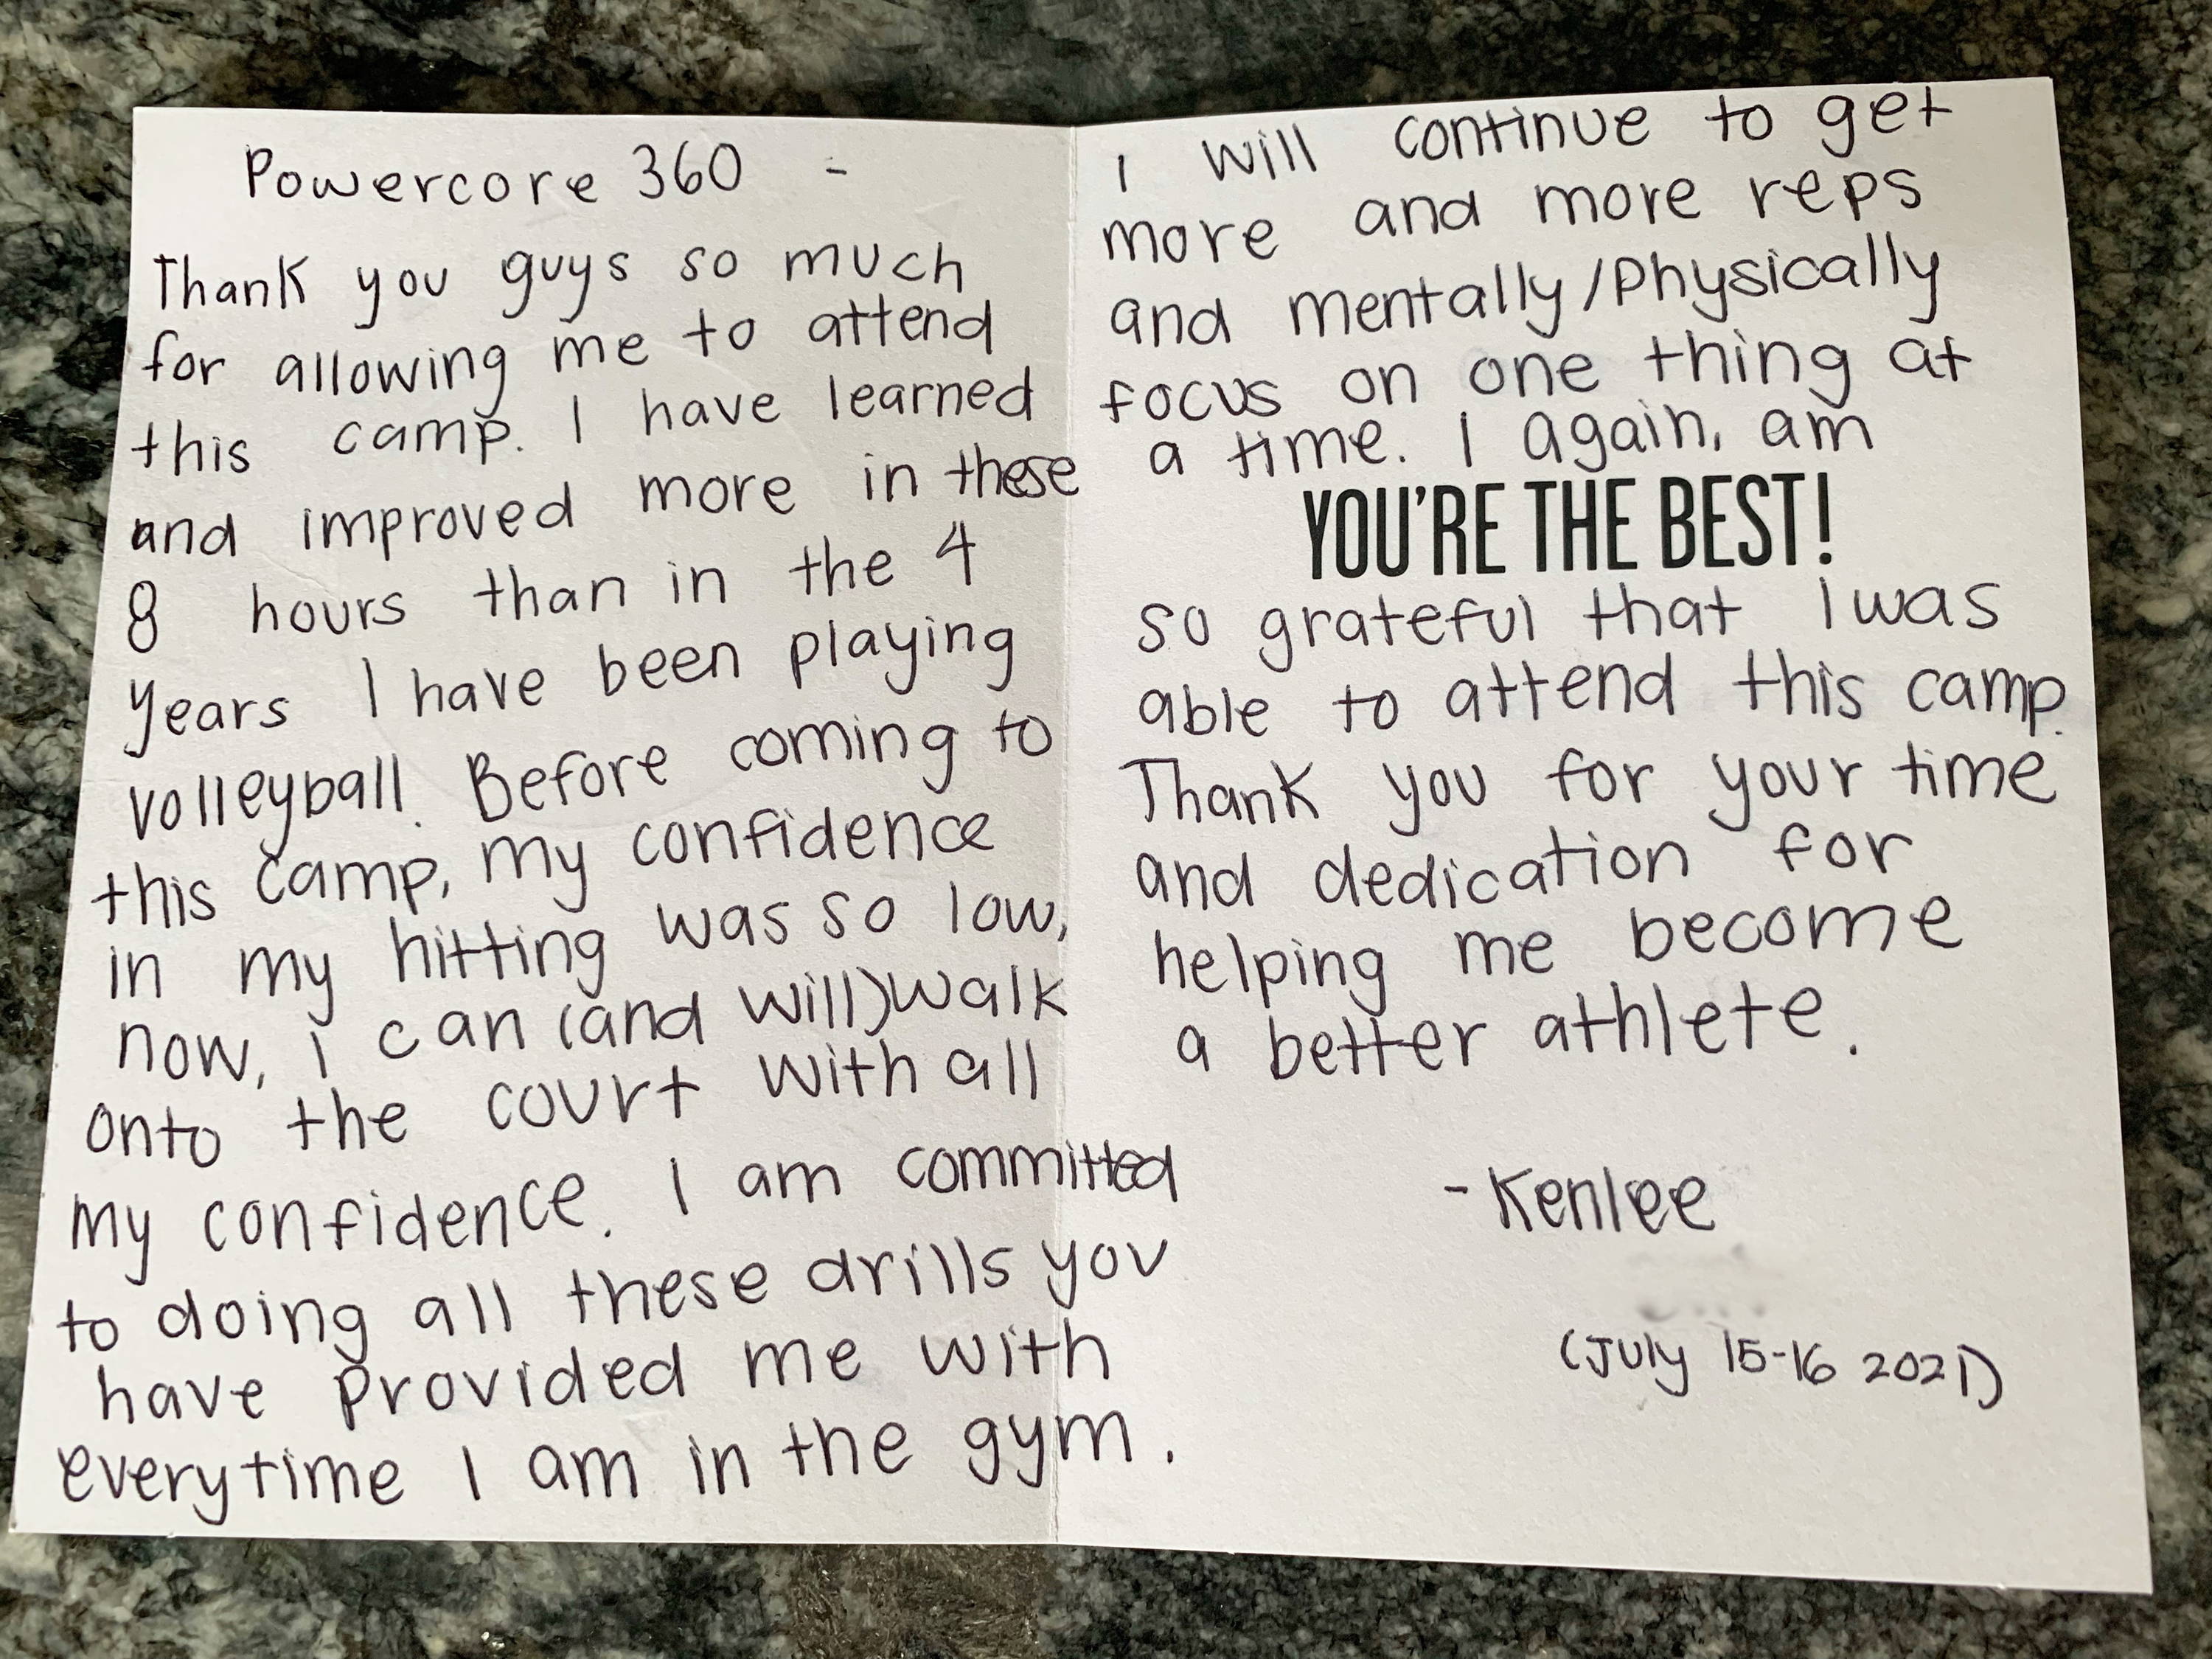 Powercore 360 -
Thank you guys so much
for allowing me to attend
this camp. I have learned
and improved more in these
8 hours than in the 4
years I have been playing
volleyball. Before coming to
this camp, my confidence
in my hitting was so low,
now, i can (and will) walk
onto the court with all
my confidence. I am committed
to doing all these drills you
have provided me with
everytime I am in the gym.
I will continue to get
more and more reps
and mentally/Physically
focus on one thing at
a time. I again, am
YOU'RE THE BEST!
so grateful that I was
able to attend this camp.
Thank you for your time
and dedication for
helping me become
a better athlete.
- Kenlee
(July 15-16 2021)